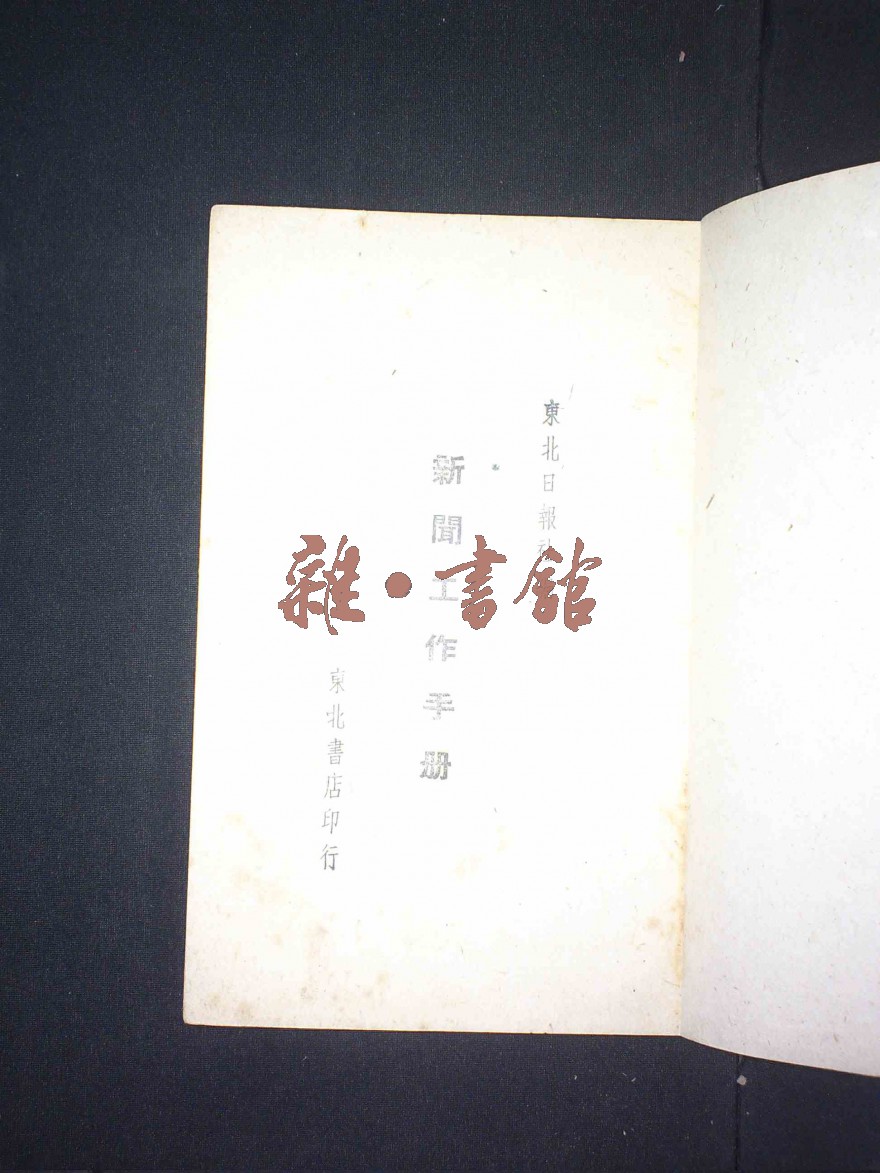 東北日報社
新聞工作手册
東北書店印行
雜·書館